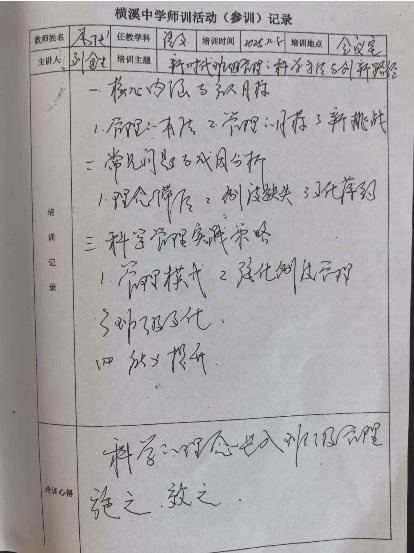 横溪中学师训活动（参训）记录
教师姓名 任教学科 语文 培训时间 2025.11.5 培训地点 会议室
主讲人 培训主题 新时代班级管理：科学方法与创新路径
培训记录
一 核心内涵与目标
1. 管理 2 管理 目标 3 新挑战
二 常见问题与成因分析
1. 理念滞后 2 制度缺失 3 文化薄弱
三 科学管理实践策略
1. 管理模式 2 强化制度管理
3 班级文化
四 能力提升
培训心得
科学 理念 入班级管理
施之、效之.